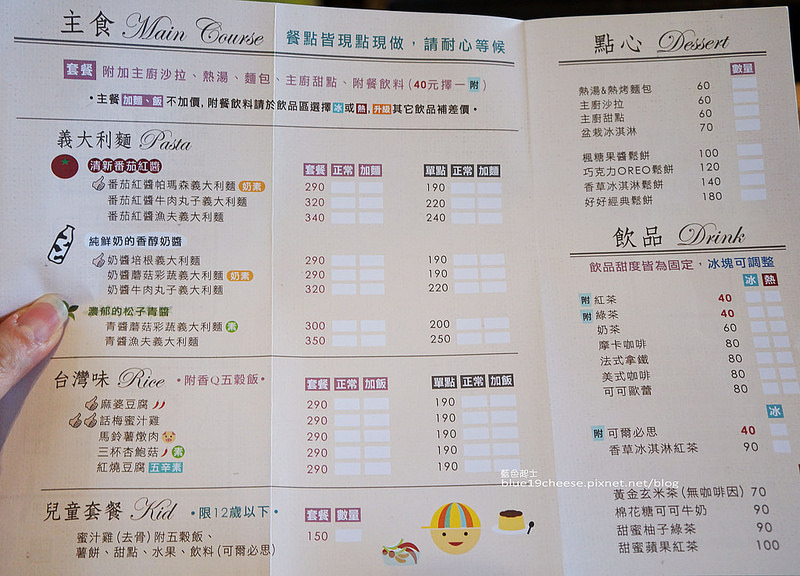 主食 Main Course 餐點皆現點現做，請耐心等候
套餐 附加主廚沙拉、熱湯、麵包、主廚甜點、附餐飲料(40元擇一附)
•主餐加麵、飯不加價，附餐飲料請於飲品區選擇冰或熱，升級其它飲品補差價•
義大利麵 Pasta
清新番茄紅醬 套餐 正常 加麵 單點 正常 加麵
番茄紅醬帕瑪森義大利麵 奶素 290 190
番茄紅醬牛肉丸子義大利麵 320 220
番茄紅醬漁夫義大利麵 340 240
純鮮奶的香醇奶醬
奶醬培根義大利麵 290 190
奶醬蘑菇彩蔬義大利麵 奶素 290 190
奶醬牛肉丸子義大利麵 320 220
濃郁的松子青醬
青醬蘑菇彩蔬義大利麵 素 300 200
青醬漁夫義大利麵 350 250
台灣味 Rice •附香Q五穀飯• 套餐 正常 加飯 單點 正常 加飯
麻婆豆腐 290 190
話梅蜜汁雞 290 190
馬鈴薯燉肉 290 190
三杯杏鮑菇 素 290 190
紅燒豆腐 五辛素 290 190
兒童套餐 Kid •限12歲以下• 套餐 數量
蜜汁雞(去骨)附五穀飯、 150
薯餅、甜點、水果、飲料(可爾必思)
點心 Dessert
數量
熱湯&熱烤麵包 60
主廚沙拉 60
主廚甜點 60
盆栽冰淇淋 70
楓糖果醬鬆餅 100
巧克力OREO鬆餅 120
香草冰淇淋鬆餅 140
好好經典鬆餅 180
飲品 Drink
飲品甜度皆為固定，冰塊可調整
冰 熱
附 紅茶 40
附 綠茶 40
奶茶 60
摩卡咖啡 80
法式拿鐵 80
美式咖啡 80
可可歐蕾 80
冰
附 可爾必思 40
香草冰淇淋紅茶 90
黃金玄米茶(無咖啡因) 70
棉花糖可可牛奶 90
甜蜜柚子綠茶 90
甜蜜蘋果紅茶 100
藍色起士
blue19cheese.pixnet.net/blog